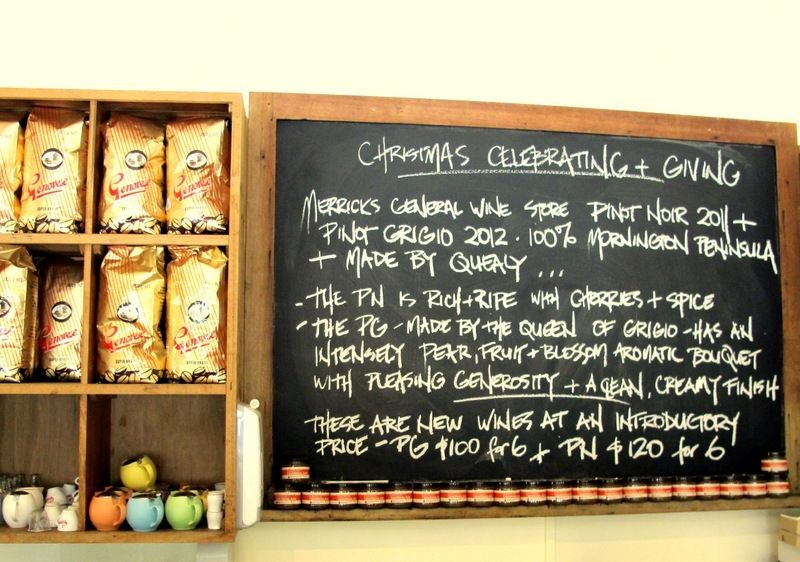 CHRISTMAS CELEBRATING + GIVING
MERRICKS GENERAL WINE STORE PINOT NOIR 2011 +
PINOT GRIGIO 2012 · 100% MORNINGTON PENINSULA
+ MADE BY QUEALY ...
- THE PN IS RICH + RIPE WITH CHERRIES + SPICE
- THE PG - MADE BY THE QUEEN OF GRIGIO - HAS AN
INTENSELY PEAR, FRUIT + BLOSSOM AROMATIC BOUQUET
WITH PLEASING GENEROSITY + A CLEAN, CREAMY FINISH
THESE ARE NEW WINES AT AN INTRODUCTORY
PRICE - PG $100 for 6 + PN $120 for 6
Genovese
SUPER BRAZIL
Genovese
Genovese
Genovese
Genovese
Genovese
Genovese